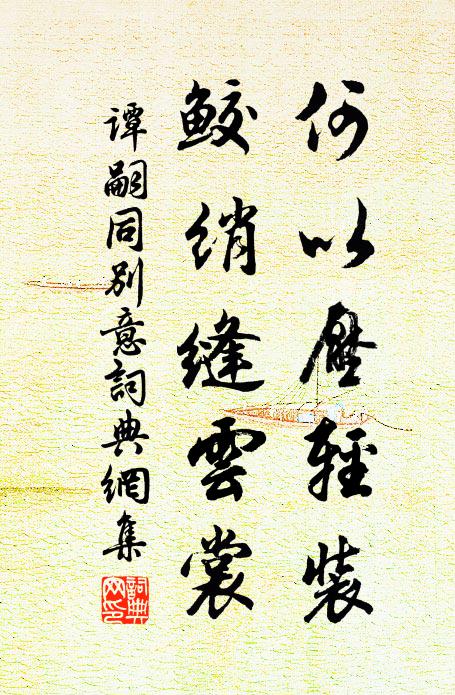 何以壓輕裝
鮫綃縫雲裳
譚嗣同別意詞典網集
詞典
网印